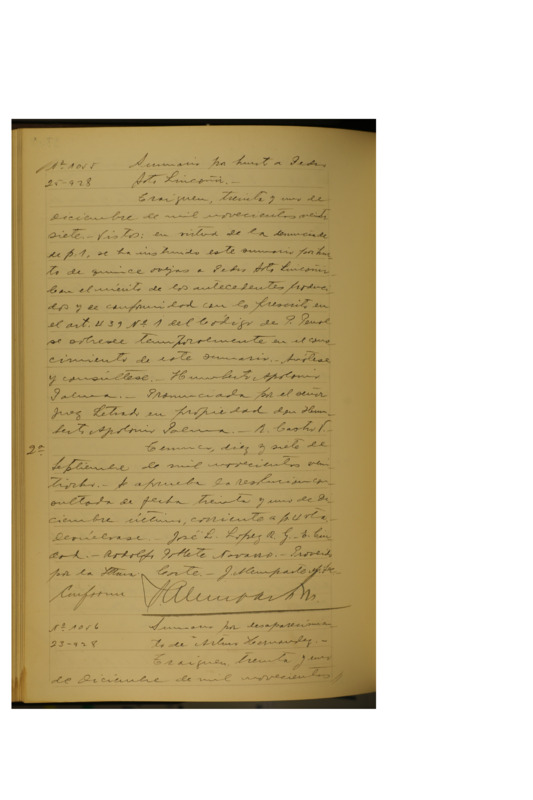 Nº 1015 Sumario por hurto a Pedro
25-928 Soto Lincoñir.-
Traiguen, treinta y uno de
diciembre de mil novecientos veinti
siete.- Vistos: en virtud de la denuncia de
de p. 1, se ha instruido este sumario por hur
to de quince ovejas a Pedro Soto Lincoñir.
Con el mérito de los antecedentes produci
dos y de conformidad con lo prescrito en
el art. 439 Nº 1 del Código de P. Penal
se sobresee temporalmente en el cono
cimiento de este sumario.- Anótese
y consúltese.- Humberto Apolonio
Palma.- Pronunciada por el señor
Juez Letrado en propiedad don Hum
berto Apolonio Palma.- R. Castro
2ª Temuco, diez y siete de
Septiembre de mil novecientos vein
tiocho.- Se aprueba la resolucion con
sultada de fecha treinta y uno de Di
ciembre último, corriente a p. 4 vta.-
Devuélvase.- José L. Lopez A. G.
Rodolfo Navarro.- Proveido
por la Iltma. Corte.- J.
Conforme
Nº 1016 Sumario por desaparecimien
23-928 to de Arturo Hernandez.-
Traiguen, treinta y uno
de Diciembre de mil novecientos